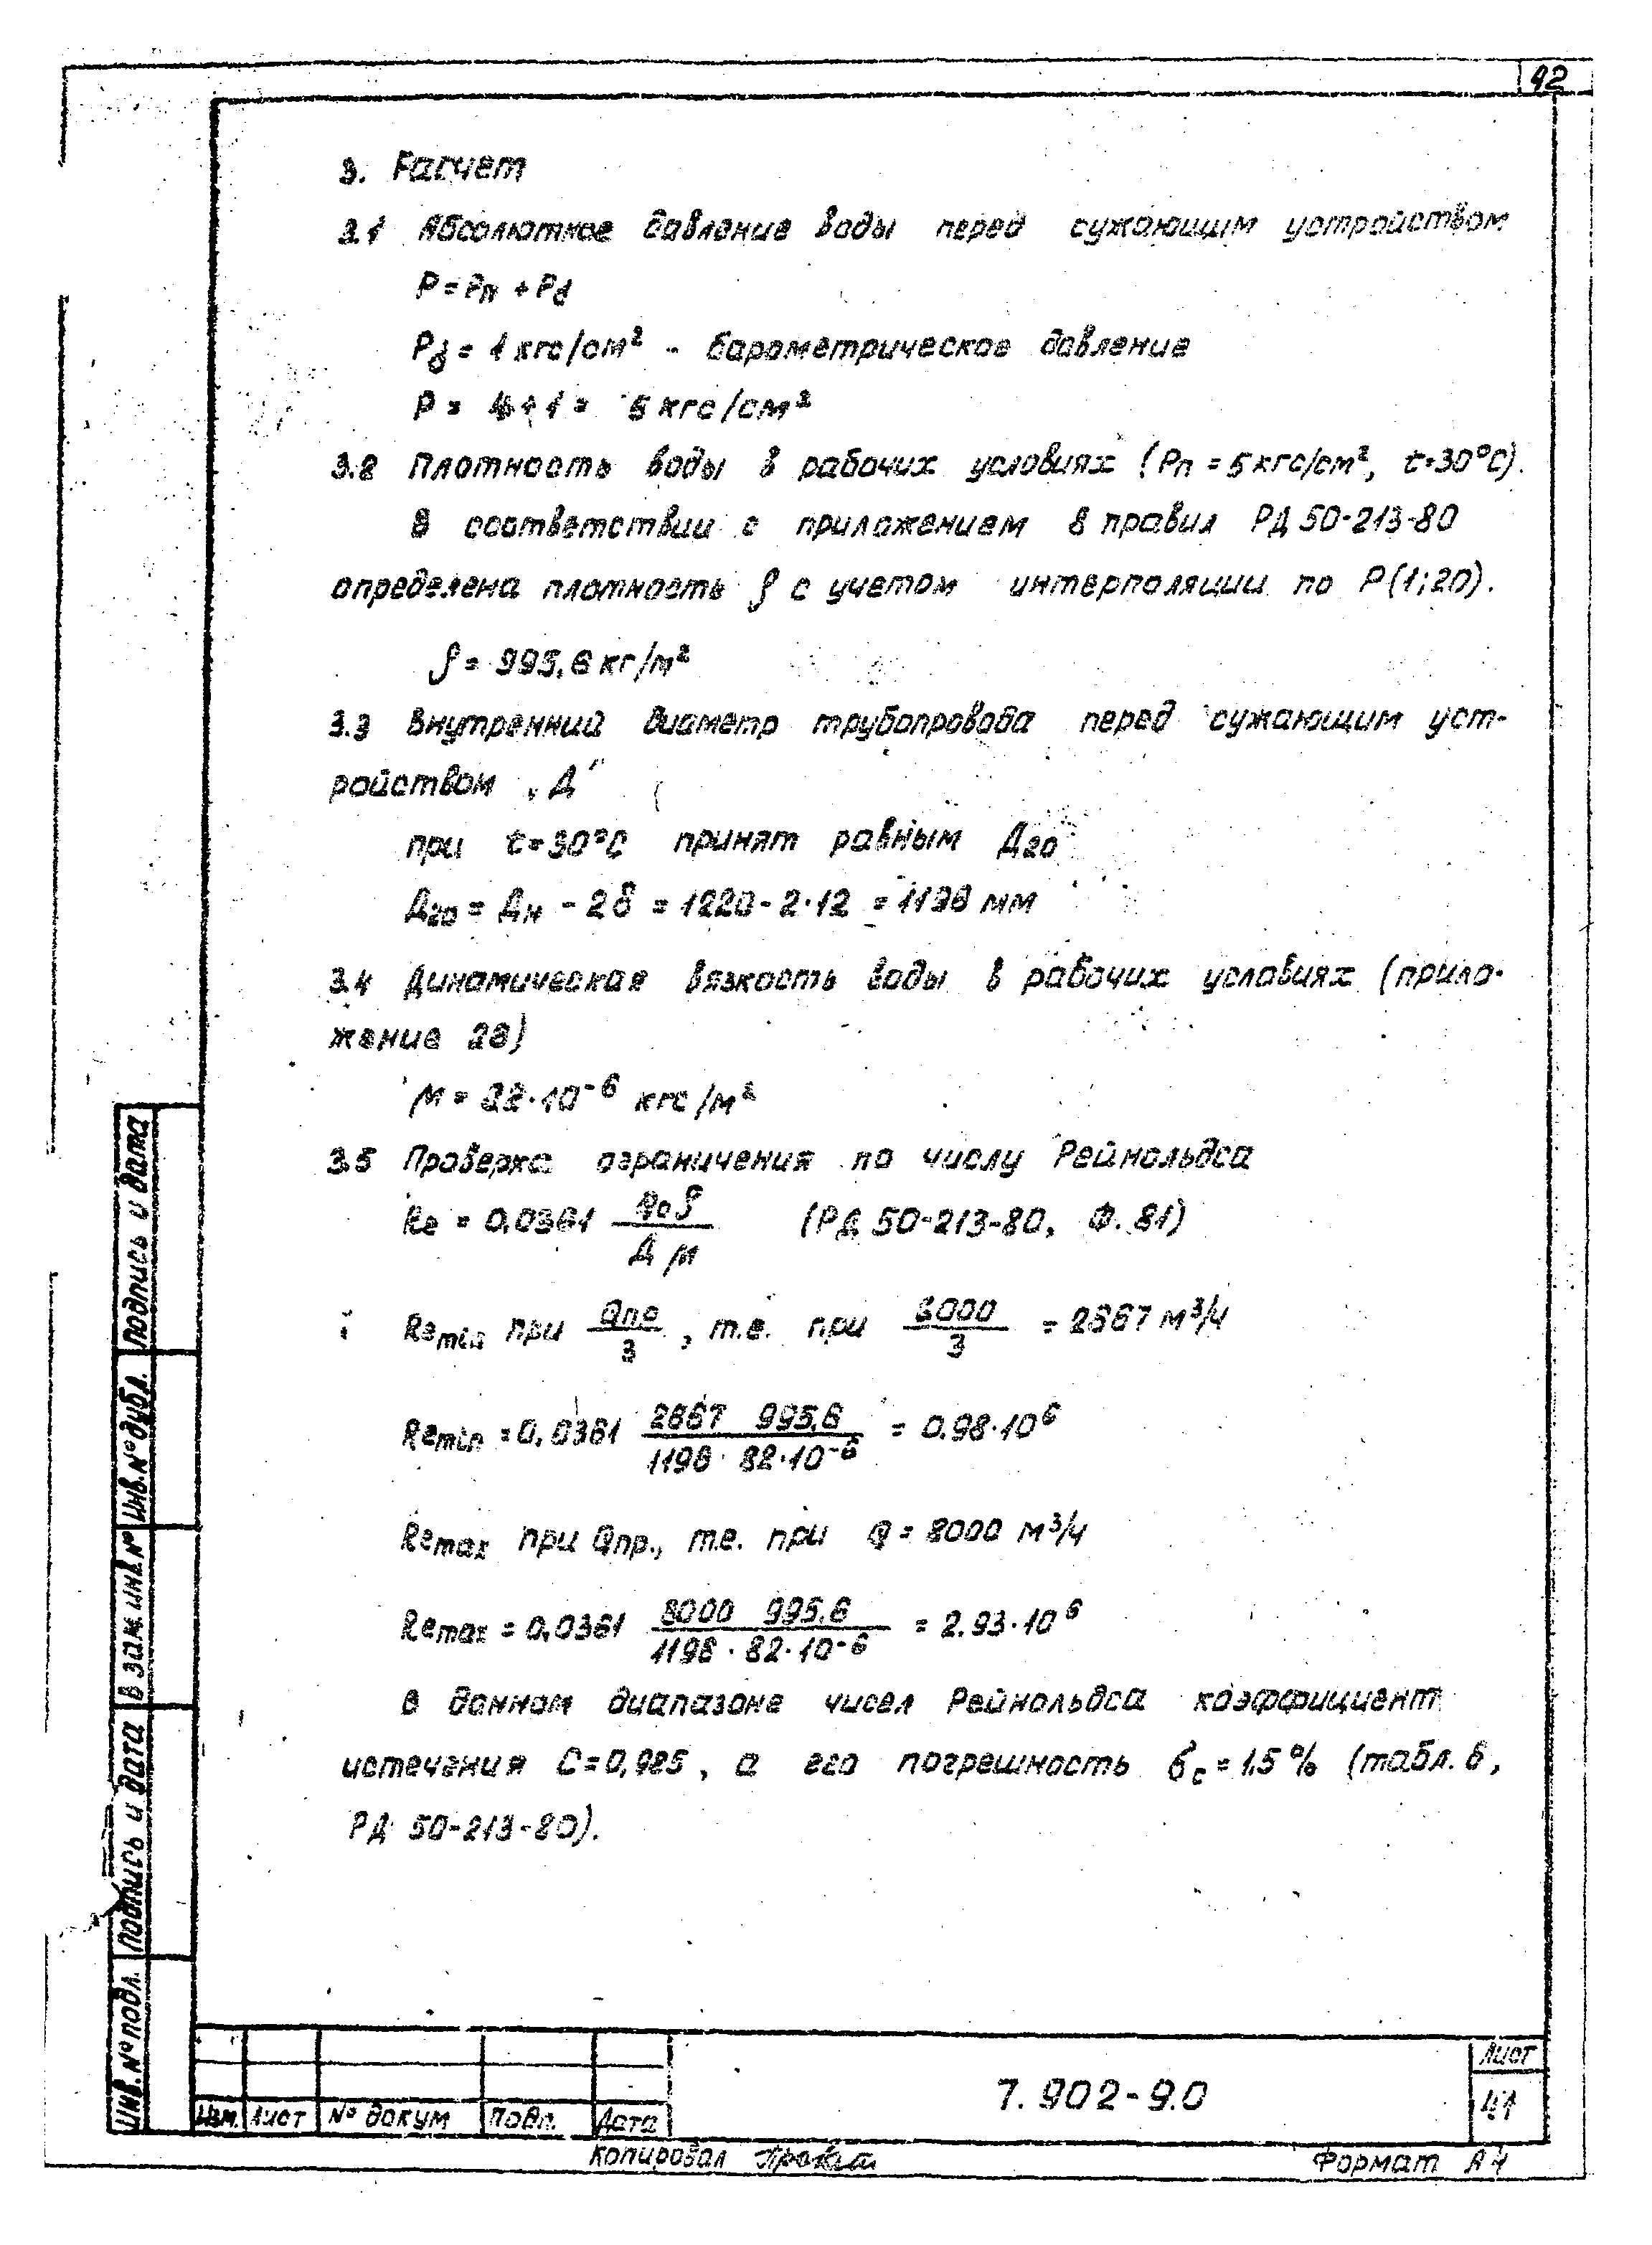 42
3. Расчет
3.1 Абсолютное давление воды перед сужающим устройством
P = Pп + Pб
Pб = 1 кгс/см² - барометрическое давление
P = 4+1 = 5 кгс/см²
3.2 Плотность воды в рабочих условиях (Pп = 5 кгс/см², t=30°C).
В соответствии с приложением 8 правил РД 50-213-80
определена плотность ρ с учетом интерполяции по P(1;20).
ρ = 995,6 кг/м²
3.3 Внутренний диаметр трубопровода перед сужающим уст-
ройством „Д"
при t=30°C принят равным Д20
Д20 = Дн - 2δ = 1220-2·12 = 1196 мм
3.4 Динамическая вязкость воды в рабочих условиях (прило-
жение 28)
μ = 82·10⁻⁶ кгс/м²
3.5 Проверка ограничения по числу Рейнольдса
Re = 0,0361 Qоρ / Дμ (РД 50-213-80, Ф. 81)
Remin при Qпр / 3, т.е. при 8000 / 3 = 2667 м³/ч
Remin = 0,0361 2667 995,6 / 1196 · 82·10⁻⁶ = 0.98·10⁶
Remax при Qпр., т.е. при Q = 8000 м³/ч
Remax = 0,0361 8000 995,6 / 1196 · 82·10⁻⁶ = 2.93·10⁶
В данном диапазоне чисел Рейнольдса коэффициент
истечения C=0,985, а его погрешность бc = 1,5% (табл. 6,
РД 50-213-80).
Подпись и дата
Инв.№ дубл.
Взам.инв.№
Подпись и дата
Инв.№ подл.
Изм. Лист № докум Подп. Дата
7.902-9.0
Лист
41
Копировал
Формат А4